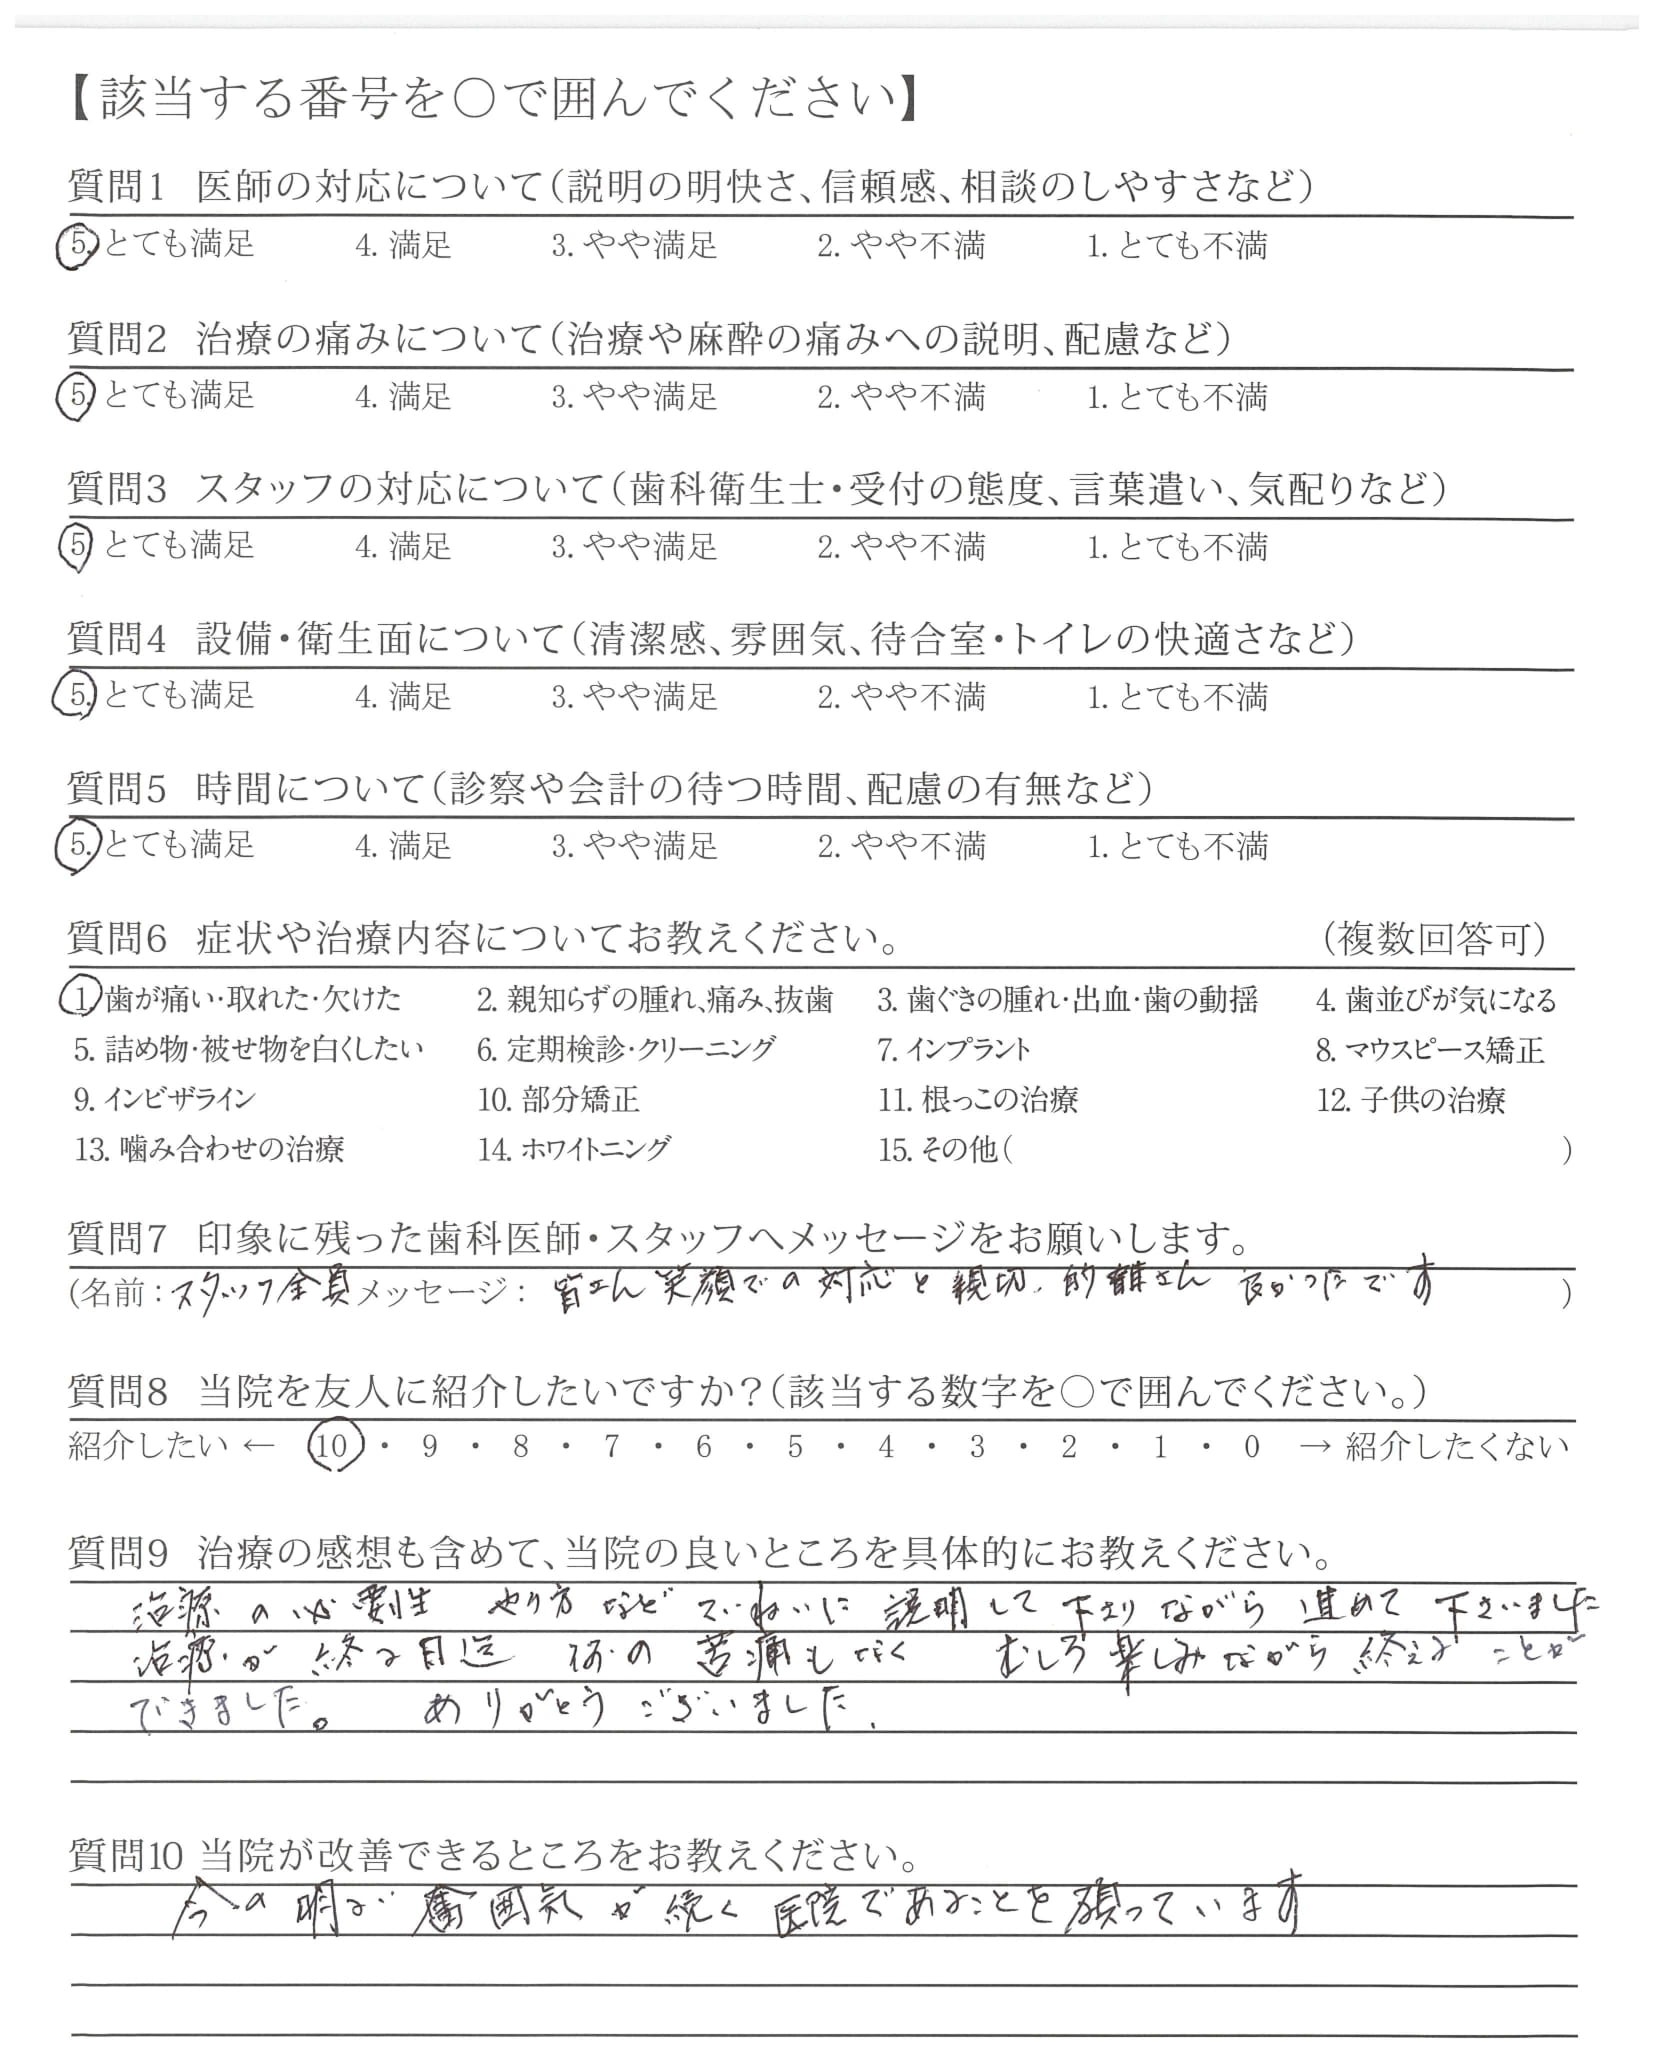 【該当する番号を○で囲んでください】
質問1 医師の対応について(説明の明快さ、信頼感、相談のしやすさなど)
5. とても満足 4. 満足 3. やや満足 2. やや不満 1. とても不満
質問2 治療の痛みについて(治療や麻酔の痛みへの説明、配慮など)
5. とても満足 4. 満足 3. やや満足 2. やや不満 1. とても不満
質問3 スタッフの対応について(歯科衛生士・受付の態度、言葉遣い、気配りなど)
5. とても満足 4. 満足 3. やや満足 2. やや不満 1. とても不満
質問4 設備・衛生面について(清潔感、雰囲気、待合室・トイレの快適さなど)
5. とても満足 4. 満足 3. やや満足 2. やや不満 1. とても不満
質問5 時間について(診察や会計の待つ時間、配慮の有無など)
5. とても満足 4. 満足 3. やや満足 2. やや不満 1. とても不満
質問6 症状や治療内容についてお教えください。 (複数回答可)
1. 歯が痛い・取れた・欠けた 2. 親知らずの腫れ、痛み、抜歯 3. 歯ぐきの腫れ・出血・歯の動揺 4. 歯並びが気になる
5. 詰め物・被せ物を白くしたい 6. 定期検診・クリーニング 7. インプラント 8. マウスピース矯正
9. インビザライン 10. 部分矯正 11. 根っこの治療 12. 子供の治療
13. 噛み合わせの治療 14. ホワイトニング 15. その他( )
質問7 印象に残った歯科医師・スタッフへメッセージをお願いします。
(名前:スタッフ全員 メッセージ: 皆さん 笑顔での対応と親切、的 さん 良かったです )
質問8 当院を友人に紹介したいですか?(該当する数字を○で囲んでください。)
紹介したい ← 10 ・ 9 ・ 8 ・ 7 ・ 6 ・ 5 ・ 4 ・ 3 ・ 2 ・ 1 ・ 0 → 紹介したくない
質問9 治療の感想も含めて、当院の良いところを具体的にお教えください。
治療の必要性 やり方などていねいに説明して下さりながら進めて下さいました
治療が終る日迄 何の苦痛もなく むしろ楽しみながら終えることが
できました。 ありがとうございました.
質問10 当院が改善できるところをお教えください。
今の明るい雰囲気が続く医院であることを願っています